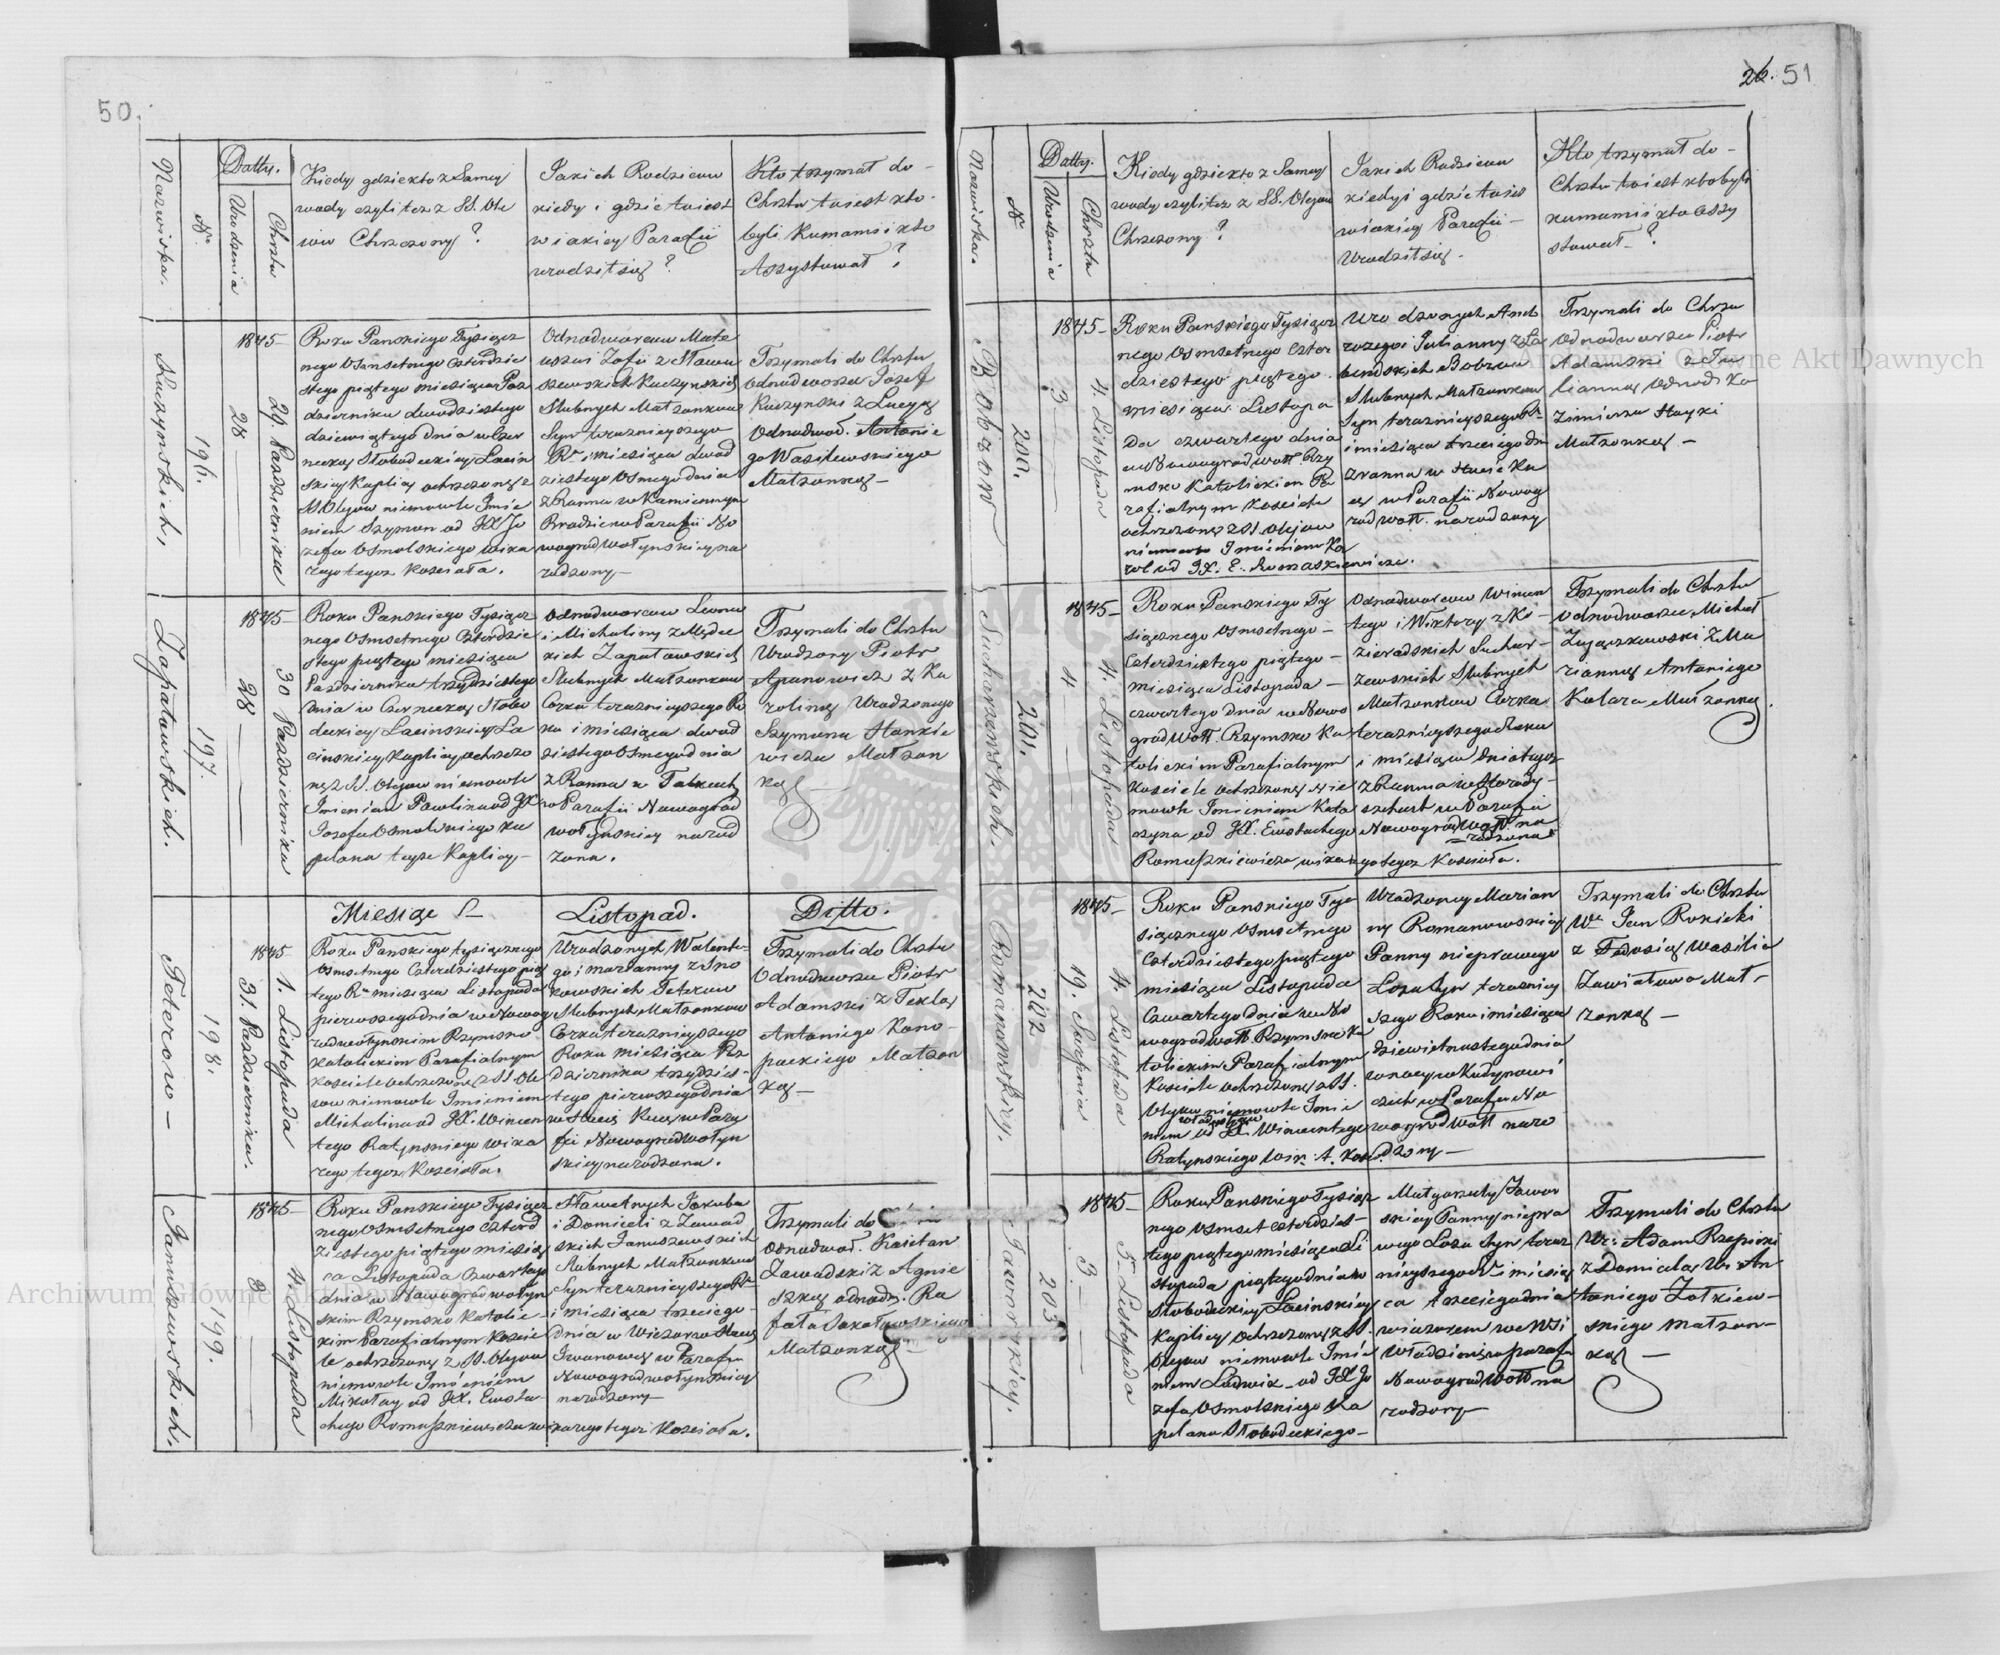 50.
Nazwiska.
Nr
Datty.
Urodzenia
Chrztu
Kiedy gdzie kto z Samey
wody czyli też z SS. Ole
iow Chrzczony?
Jakich Rodzicow
kiedy i gdzie to iest
w iakiey Parafii
urodził się?
Kto trzymał do
Chrztu to iest kto
byli Kumami i kto
Assystował?
Kuczynskich,
196.
1845
28
29. Pazdziernika
Roku Panskiego Tysiącz
nego Osmsetnego Czterdzie
stego piątego miesiąca Paz
dziernika dwudziestego
dziewiątego dnia w Czer
neckoy Słobodeckiey Łacin
skiey Kaplicy ochrzczony z
SS Oleyow niemowle Imie
niem Szymon od JX Jo
zefa Osmolskiego wika
rego tegoz Koscioła.
Odnodworcow Mate
usza i Zofii z Stawu
szewskich Kuczynskich
Slubnych Małzonkow
Syn terazniejszego
Rku i miesiąca dwud
ziestego Osmego dnia
z Ranna w Kamiennym
Brodzie w Parafii No
wogrodwołynskiey na
rodzony
Trzymali do Chrztu
Odnodworzec Jozef
Kuczynski z Łucyą
Odnodwor. Antonie
go Wasilewskiego
Małzonką
Zapotawskich.
197.
1845
28
30 Pazdziernika
Roku Panskiego Tysiącz
nego Osmsetnego Czterdzie
stego piątego miesiąca
Pazdziernika trzydziestego
dnia w Czerneckoy Słobo
deckiey Łacinskiey
Kaplicy ochrzczo
ną z SS. Oleyow niemowle
Imieniem Pawlina od JX
Jozefa Osmolskiego ka
pelana teyze Kaplicy
Odnodworcow Leona
i Michaliny z Mędec
kich Zapotawskich
Slubnych Małzonkow
Corka terazniejszego Ro
ku i miesiąca dwud
ziestego Osmego dnia
z Ranna w
w Parafii Nowogrod
wołynskiey narod
zona.
Trzymali do Chrztu
Urodzony Piotr
Apanowicz z Ka
roliną Urodzonego
Szymona Stankie
wicza Małzon
ką
Miesiąc
Listopad.
Ditto.
Peterow
198.
1845
31. Pazdziernika.
1. Listopada
Roku Panskiego tysiącznego
Osmsetnego Czterdziestego pią
tego Rku miesiąca Listopada
pierwszego dnia w Nowog
rodwołynskim Rzymsko
Katolickim Parafialnym
Kosciele ochrzczoną z SS. Ole
iow niemowle Imieniem
Michalina od JX. Wincen
tego Ratynskiego wika
rego tegoz Koscioła.
Urodzonych Walente
go i Maryanny z Sno
kowskich Peterow
Slubnych Małzonkow
Corka terazniejszego
Roku miesiąca Paz
dziernika trzydzies
tego pierwszego dnia
w Hucie w Para
fii Nowogrodwołyn
skiey narodzona.
Trzymali do Chrztu
Odnodworzec Piotr
Adamski z Teklą
Antoniego Kono
packiego Małzon
ką
Januszewskich.
199.
1845
3
4. Listopada
Roku Panskiego Tysiącz
nego Osmsetnego Czterd
ziestego piątego miesią
ca Listopada czwartego
dnia w Nowogrodwołyn
skim Rzymsko Katolic
kim Parafialnym Koscie
le ochrzczony z SS. Oleyow
niemowle Imieniem
Mikołay od JX. Eusta
chego Romaszkiewicza wi
karego tegoz Koscioła.
Sławetnych Jakuba
i Domiceli z Zawad
skich Januszewskich
Slubnych Małzonkow
Syn terazniejszego Rku
i miesiąca trzeciego
dnia w Wieczor w
Iwanowey w Parafii
Nowogrodwołynskiey
narodzony
Trzymali do
Odnodwor. Kaietan
Zawadski z Agnie
szką odnodw. Ra
fała Sokołowskiego
Małzonką
26. 51
Nazwiska.
N
Datty.
Urodzenia
Chrztu
Kiedy gdzie kto z Samey
wody czyli też z SS. Oleyow
Chrzczony?
Jakich Rodzicow
kiedy i gdzie to iest
w iakiey Parafii
Urodził się.
Kto trzymał do
Chrztu to iest kto byli
kumami i kto Assy
stował?
Bobrzow
200.
1845
3
4. Listopada
Roku Panskiego Tysiącz
nego Osmsetnego Czter
dziestego piątego
miesiąca Listopa
da czwartego dnia
w Nowogrodwoł. Rzy
msko Katolickim Pa
rafialnym Kosciele
ochrzczony z SS. Oleyow
niemowle Imieniem Ka
rol od JX. E. Romaszkiewicza.
Urodzonych And
rzego i Julianny z
Bobrzow
Slubnych Małzonkow
Syn terazniejszego Rku
i miesiąca trzeciego dn
z ranna w Hucie
w Parafii Nowog
rodwoł. narodzony
Trzymali do Chrztu
Odnodworzec Piotr
Adamski z Ju
lianną odnod. Ka
zimierza Hayki
Małzonką
Sucharzewskich.
201.
1845
4
4. Listopada
Roku Panskiego Ty
siącznego Osmsetnego
Czterdziestego piątego
miesiąca Listopada
czwartego dnia w Nowo
grodwoł. Rzymsko Ka
tolickim Parafialnym
Kosciele ochrzczoną nie
mowle Imieniem Kata
rzyna od JX. Eustachego
Romaszkiewicza wikar
ego tegoz Koscioła.
Odnodworcow Wincen
tego i Wiktoryi z Ko
zieradskich Suchar
zewskich Slubnych
Małzonkow Corka
terazniejszego Roku
i miesiąca dnia tegoz
z Ranna w Horody
szchach w Parafii
Nowogrodwoł. na
rodzona
Trzymali do Chrztu
Odnodworzec Michał
Zajączkowski z Ma
rianną Antoniego
Kolara Małzonką.
Romanowskiey.
202
1845
19. Sierpnia
4. Listopada
Roku Panskiego Tys
iącznego Osmsetnego
Czterdziestego piątego
miesiąca Listopada
Czwartego dnia w No
wogrodwoł. Rzymsko Ka
tolickim Parafialnym
Kosciele ochrzczony z SS.
Oleyow niemowle Imie
niem od JX. Wincentego
Ratynskiego Wik: t. Kosc.
Urodzoney Marian
ny Romanowskiey
Panny nieprawego
Łoza Syn terazniej
szego Roku i miesiąca
dziewiętnastego dnia
w nocy w Kudynowi
czach w Parafii No
wogrodwoł naro
dzony
Trzymali do Chrztu
Wny Jan Rokicki
z Teodosią Wasilia
Zawiałowa Mał
zonką
Jaworskiey.
203
1845
3
5. Listopada
Roku Panskiego Tysiącz
nego Osmset Czterdzies
tego piątego miesiąca Li
stopada piątego dnia w
Słobodeckiey Łacinskiey
Kaplicy ochrzczony z SS.
Oleyow niemowle Imie
niem Ludwik od JX Jo
zefa Osmolskiego Ka
pelana Słobodeckiego
Małgorzaty Jawor
skiey Panny niepra
wego Łoza Syn teraz
niejszego Rku i miesią
ca trzeciego dnia
wieczorem we Wsi
w Parafii
Nowogrodwoł na
rodzony
Trzymali do Chrztu
Ur: Adam Rzepicki
z Domicelą Ur An
toniego Zołkiew
skiego Małzon
ką
Archiwum Główne Akt Dawnych
Archiwum Główne Akt Dawnych